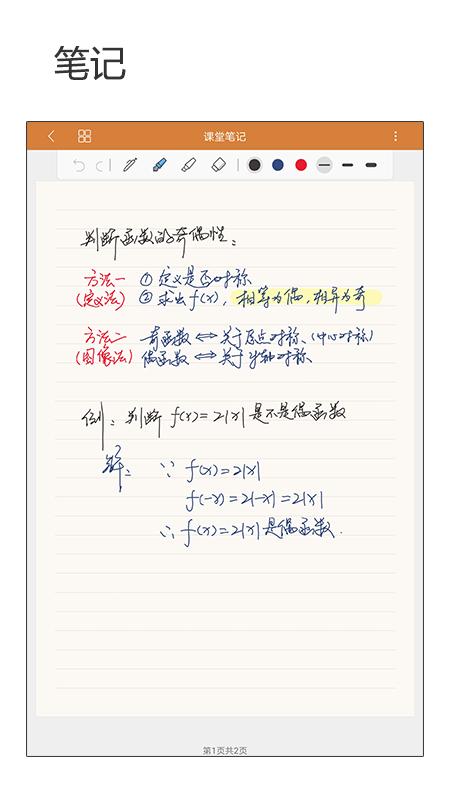 笔记
课堂笔记
判断函数的奇偶性：
方法一 ① 定义是否对称
(定义法) ② 求出f(x)，相等为偶，相异为奇
方法二 奇函数 ⇔ 关于原点对称、(中心对称)
(图像法) 偶函数 ⇔ 关于y轴对称
例：判断 f(x)=2|x| 是不是偶函数
解： ∵ f(x)=2|x|
f(-x)=2|-x|=2|x|
∴ f(x)=2|x| 是偶函数.
第1页共2页